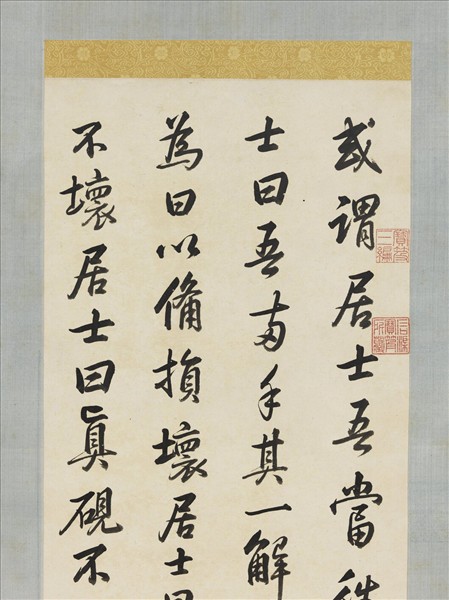 或謂居士吾當
士曰吾兩手其一解
為曰以備損壞居士曰
不壞居士曰眞硯不
寶笈三編